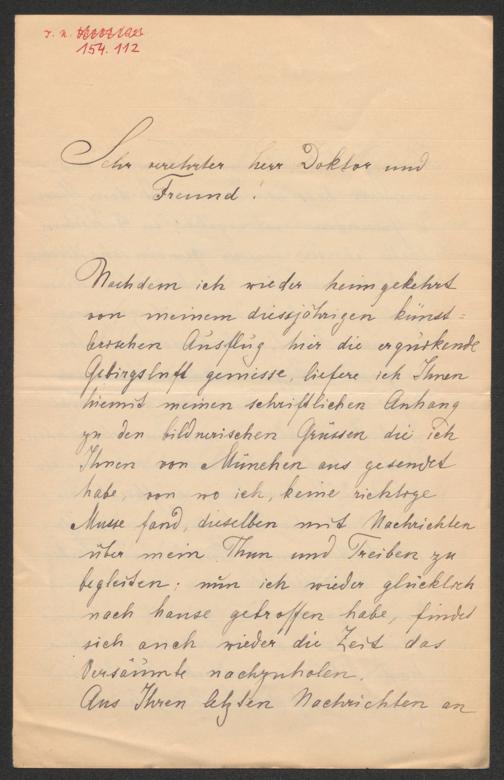 J. N.
154.112
Sehr verehrter Herr Doktor und
Freund!
Nachdem ich wieder heimgekehrt
von meinem diessjährigen künst=
lerischen Ausflug hier die erquikende
Gebirgsluft geniesse, liefere ich Ihnen
hiemit meinen schriftlichen Anhang
zu den bildnerischen Grüssen die ich
Ihnen von München aus gesendet
habe, von wo ich, keine richtige
Musse fand, dieselben mit Nachrichten
über mein Thun und Treiben zu
begleiten; nun ich wieder glücklich
nach hause getroffen habe, findet
sich auch wieder die Zeit das
Versäumte nachzuholen.
Aus Ihren letzten Nachrichten an